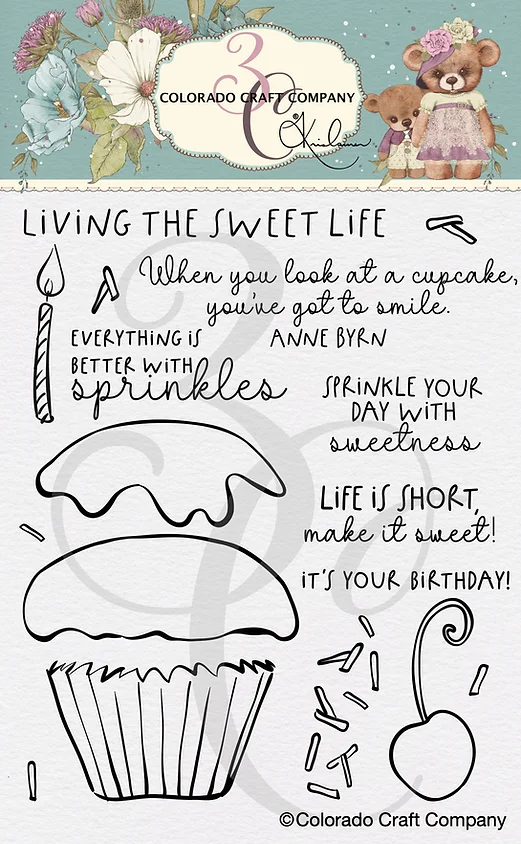 3C
COLORADO CRAFT COMPANY
Kris Lauren
LiViNG THE SWEET LiFE
When you look at a cupcake,
you've got to smile.
ANNE BYRN
EVERYTHiNG iS
BETTER WiTH
sprinkles
SPRiNKLE YOUR
DAY WiTH
sweetness
LiFE iS SHORT,
make it sweet!
iT'S YOUR BiRTHDAY!
©Colorado Craft Company